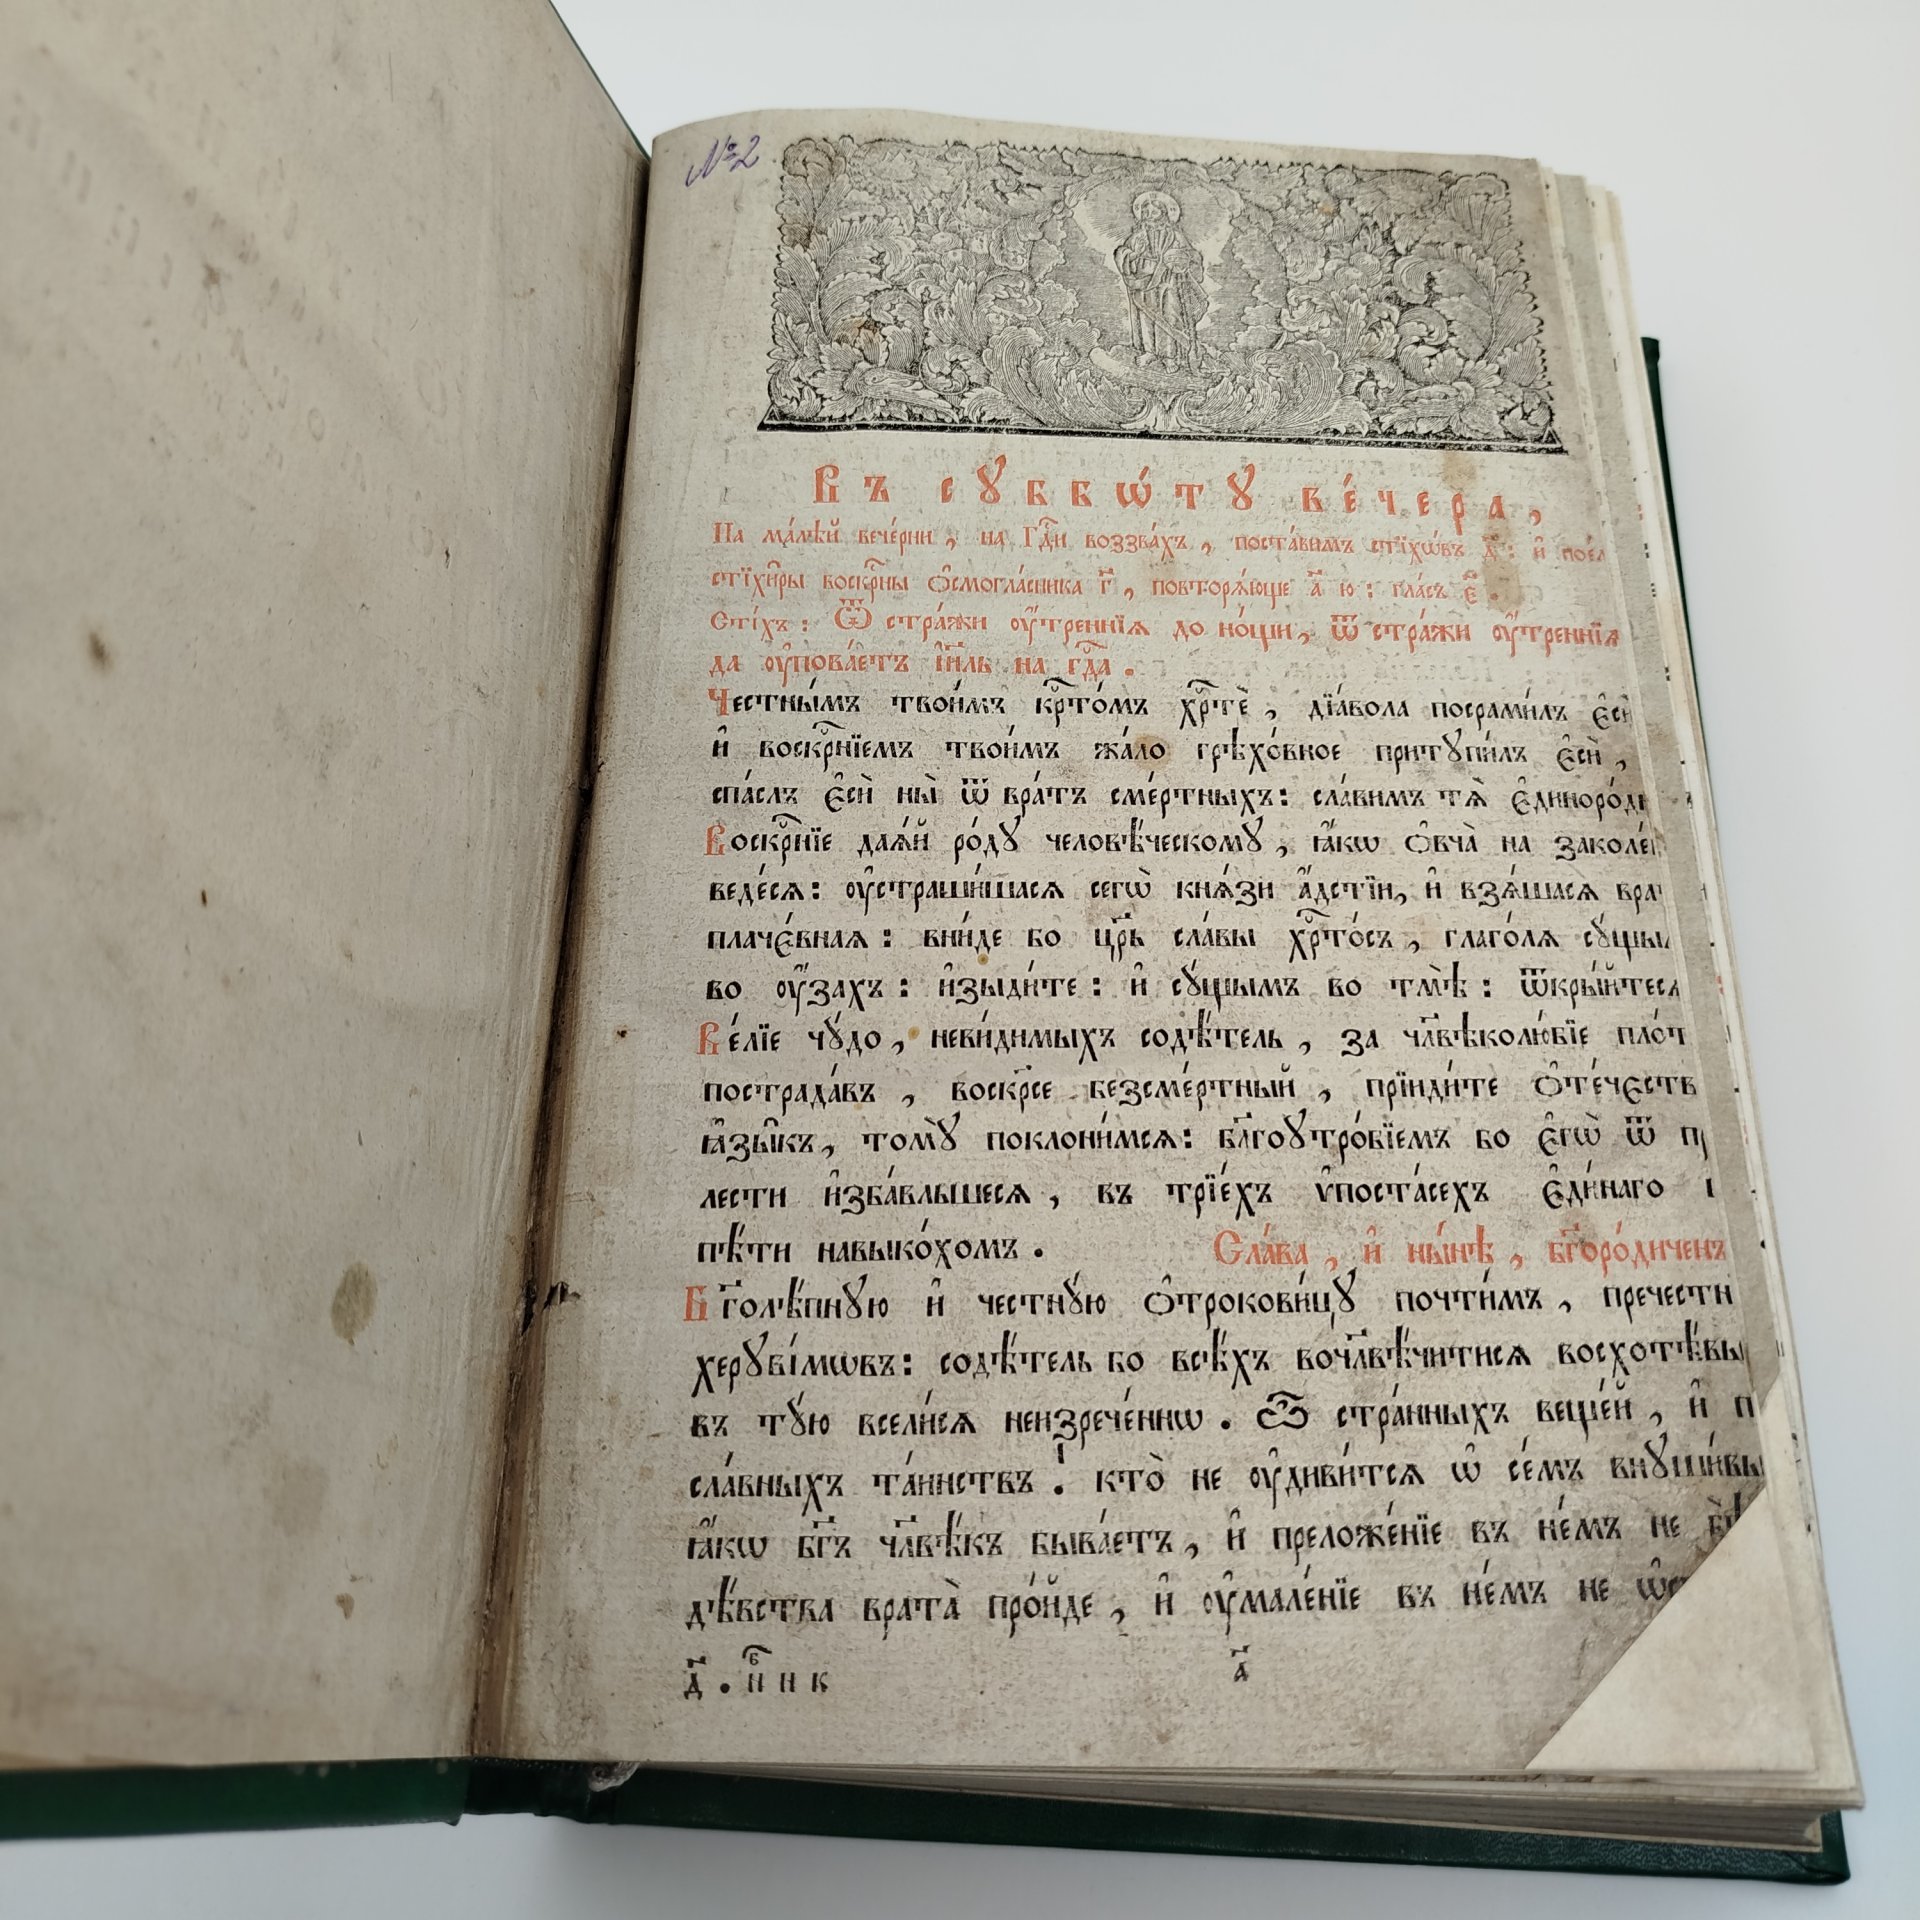 №2
Въ сꙋббѡ́тꙋ ве́чера,
На ма́лѣй вече́рни, на Гдⷭ҇и воззва́хъ, поста́вимъ стїхѡ́въ д҃: и҆ пое́м
стїхи̑ры воскрⷭ҇ны ѻ҆смогла́сника г҃, повторѧ́юще а҃ ю: гла́съ є҃.
Сті́хъ: Ѿ стра́жи ᲂу҆́треннїѧ до но́щи, ѿ стра́жи ᲂу҆́треннїѧ
да ᲂу҆пова́етъ і҆и҃ль на гдⷭ҇а.
Честны́мъ твои́мъ крⷭ҇то́мъ хрⷭ҇тѐ, дїа́вола посрами́лъ є҆сѝ
и҆ воскрⷭ҇нїемъ твои́мъ жа́ло грѣхо́вное притꙋпи́лъ є҆сѝ,
спа́слъ є҆сѝ ны̀ ѿ вра́тъ сме́ртныхъ: сла́вимъ тѧ̀ є҆диноро́д
Воскрⷭ҇нїе даѧ́й ро́дꙋ человѣ́ческомꙋ, ꙗ҆́кѡ ѻ҆вча̀ на заколе́н
веде́сѧ: ᲂу҆страши́шасѧ сегѡ̀ кнѧ́зи а҆́дстїи, и҆ взѧ́шасѧ вра
плаче́внаѧ: вни́де бо цр҃ь сла́вы хрⷭ҇то́съ, глаго́лѧ сꙋ́щы
во ᲂу҆́захъ: и҆зыди́те: и҆ сꙋ́щымъ во тмѣ̀: ѿкры́йтесѧ
Ве́лїе чꙋ́до, неви́димыхъ содѣ́тель, за чл҃вѣколю́бїе пло́т
пострада́въ, воскр҃се безсме́ртный, прїиди́те ѻ҆те́чєств
ꙗ҆зы̑къ, томꙋ̀ поклони́мсѧ: бл҃гоꙋтро́бїемъ бо є҆гѡ̀ ѿ пр
лести и҆зба́вльшесѧ, въ трїе́хъ ѵ҆поста́сехъ є҆ди́наго
пѣ́ти навыко́хомъ. Сла́ва, и҆ ны́нѣ, бг҃оро́диченъ
Бг҃олѣ́пнꙋю и҆ честнꙋ́ю ѻ҆трокови́цꙋ почти́мъ, пречестн
херꙋві́мѡвъ: содѣ́тель бо всѣ́хъ вочл҃вѣ́читисѧ восхотѣ́вы
въ тꙋ́ю всели́сѧ неизрече́ннѡ. Ѽ стра́нныхъ веще́й, и҆ п
сла́вныхъ та́инствъ! кто̀ не ᲂу҆диви́тсѧ ѡ҆ се́мъ внꙋши́вы
ꙗ҆́кѡ бг҃ъ чл҃вѣ́къ быва́етъ, и҆ преложе́нїе въ не́мъ не бѣ̀
дѣ́вства врата̀ про́йде, и҆ ᲂу҆мале́нїе въ не́мъ не ѡ҆с
д҃. а҃